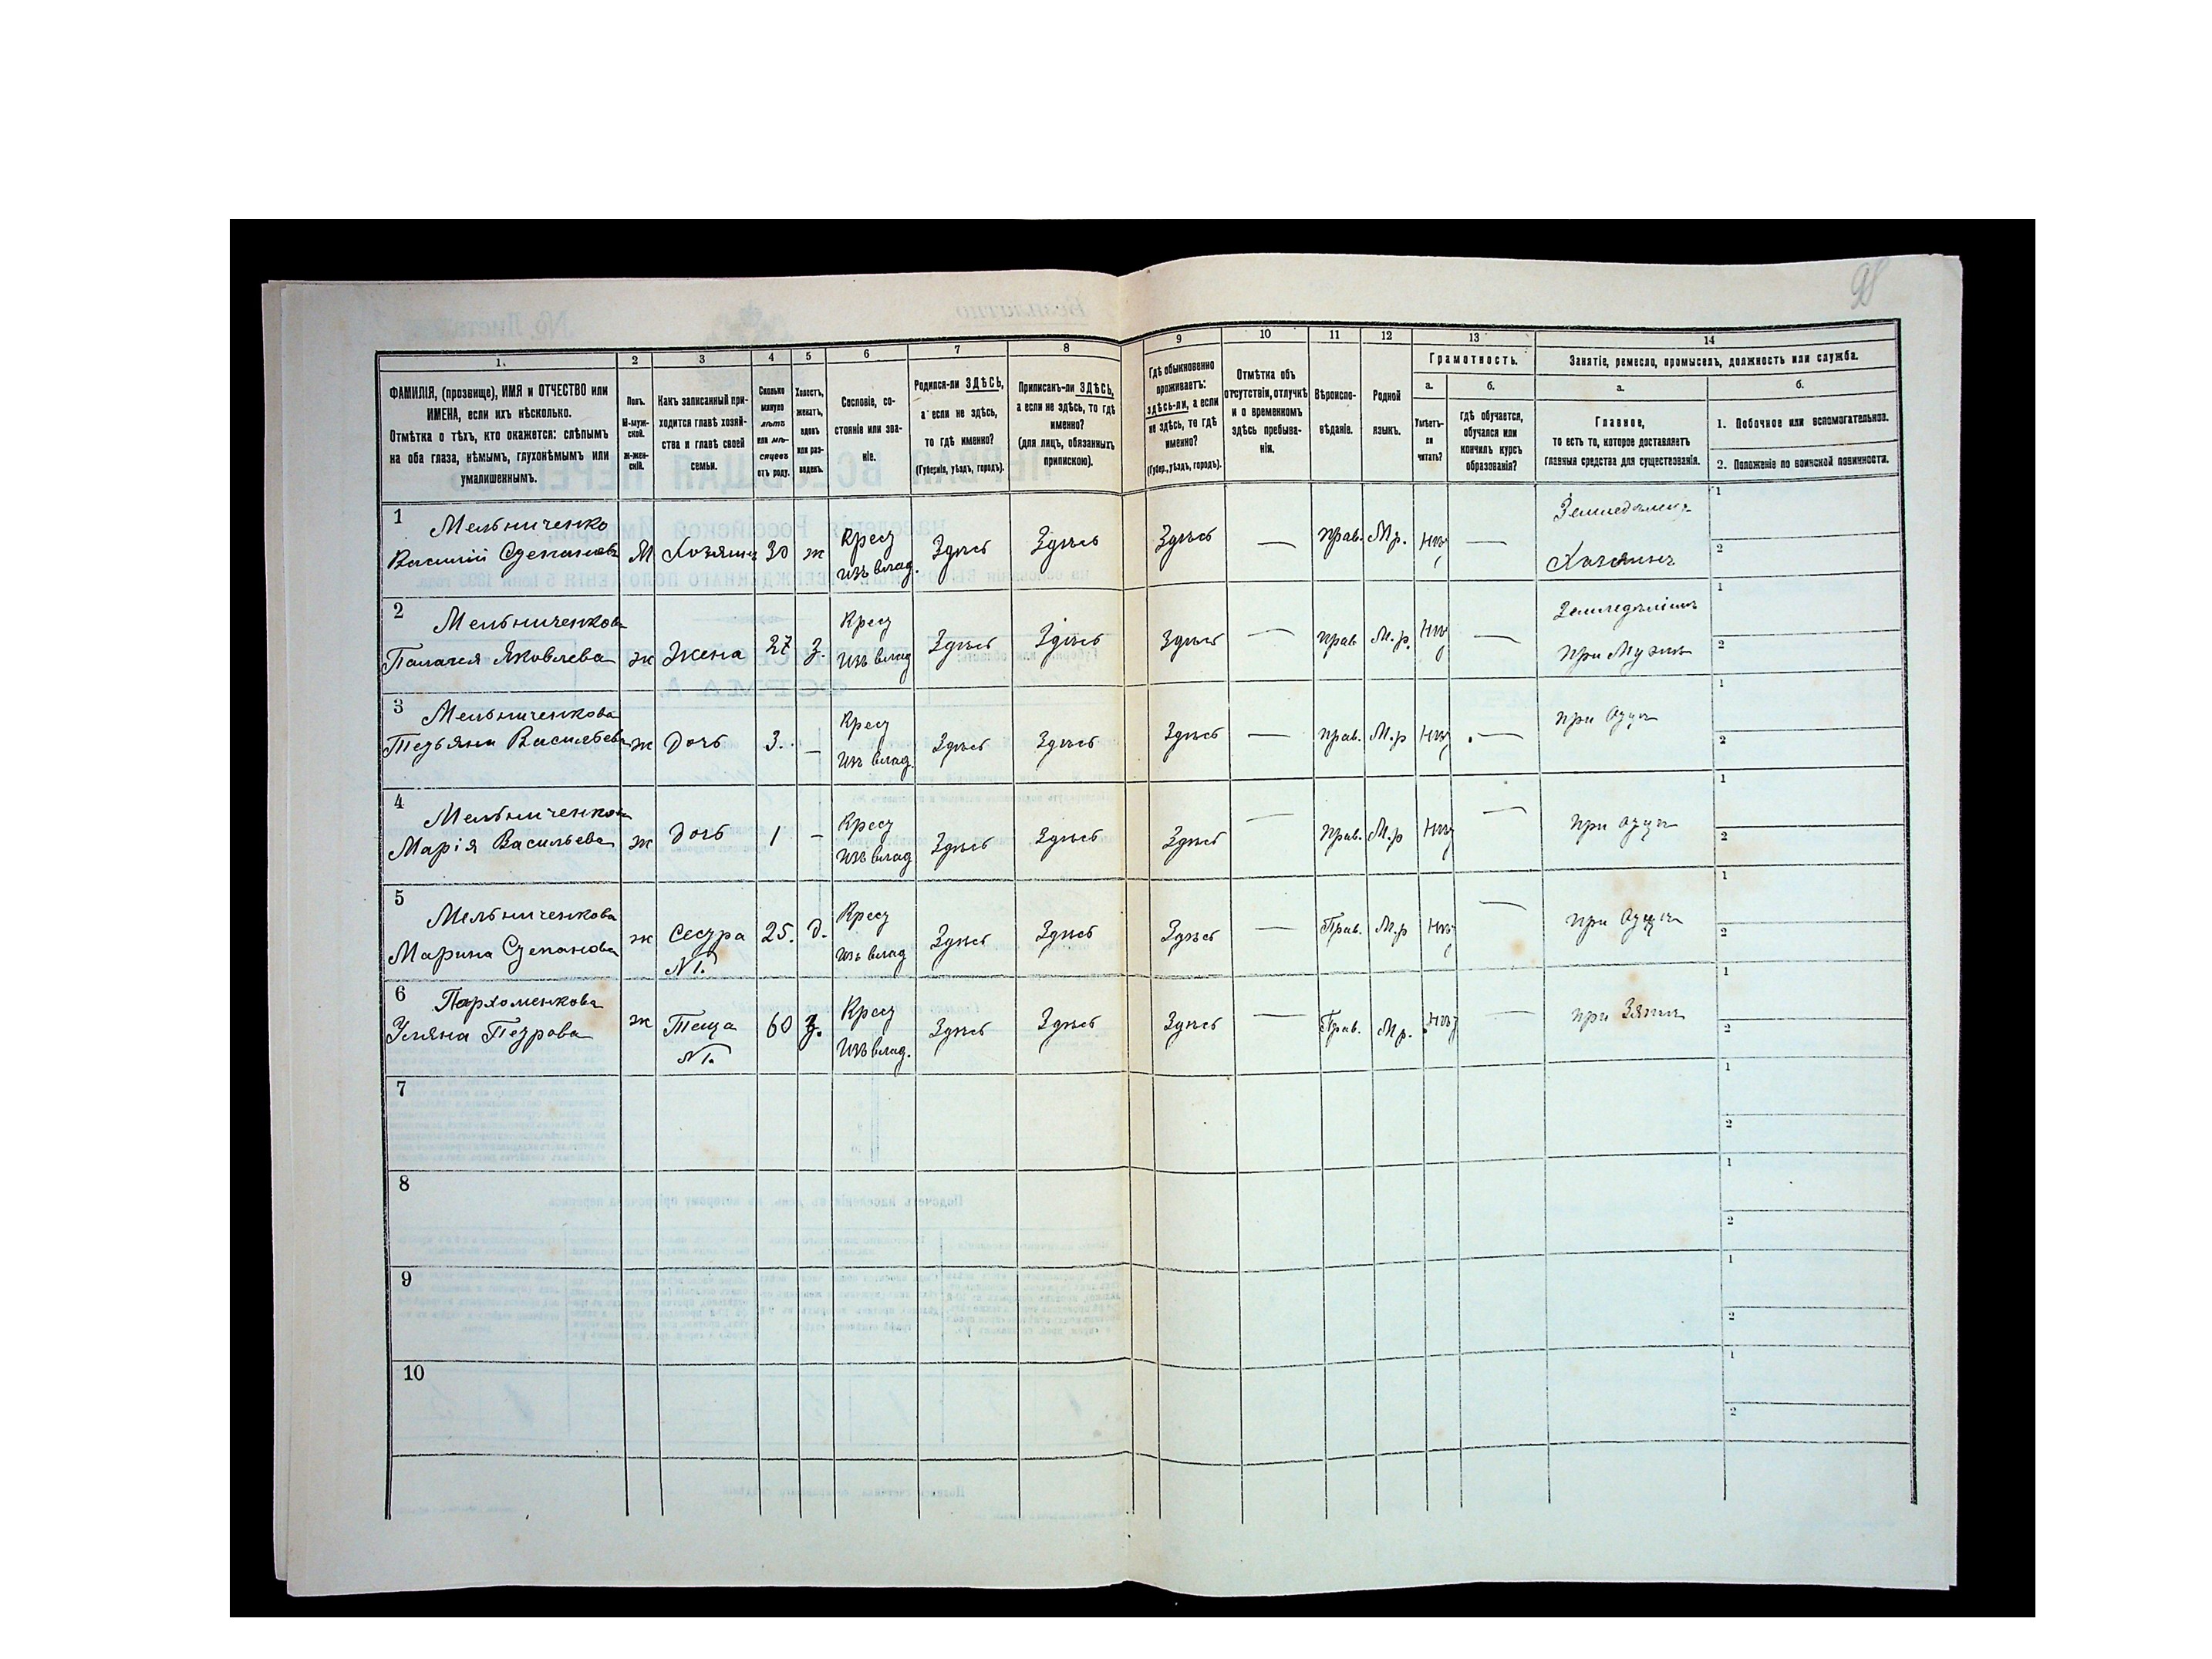 98
1. 2 3 4 5 6 7 8 9 10 11 12 13 14
ФАМИЛІЯ, (прозвище), ИМЯ и ОТЧЕСТВО или
ИМЕНА, если ихъ нѣсколько.
Отмѣтка о тѣхъ, кто окажется: слѣпымъ
на оба глаза, нѣмымъ, глухонѣмымъ или
умалишеннымъ.
Полъ.
М-муж-
ской.
ж-жен-
скій.
Какъ записанный при-
ходится главѣ хозяй-
ства и главѣ своей
семьи.
Сколько
минуло
лѣтъ
или мѣ-
сяцевъ
отъ роду.
Холостъ,
женатъ,
вдовъ
или раз-
веденъ.
Сословіе, со-
стояніе или зва-
ніе.
Родился-ли ЗДѢСЬ,
а если не здѣсь,
то гдѣ именно?
(Губернія, уѣздъ, городъ).
Приписанъ-ли ЗДѢСЬ,
а если не здѣсь, то гдѣ
именно?
(для лицъ, обязанныхъ
припискою).
Гдѣ обыкновенно
проживаетъ:
здѣсь-ли, а если
не здѣсь, то гдѣ
именно?
(Губер., уѣздъ, городъ).
Отмѣтка объ
отсутствіи, отлучкѣ
и о временномъ
здѣсь пребыва-
ніи.
Вѣроиспо-
вѣданіе.
Родной
языкъ.
Грамотность.
а.
Умѣетъ-
ли
читать?
б.
гдѣ обучается,
обучался или
кончилъ курсъ
образованія?
Занятіе, ремесло, промыселъ, должность или служба.
а.
Главное,
то есть то, которое доставляетъ
главныя средства для существованія.
б.
1. Побочное или вспомогательное.
2. Положеніе по воинской повинности.
1 Мельниченко Крест Земледѣлецъ 1
Василий Степановъ М Хозяинъ 30 ж изъ влад. Здѣсь Здѣсь Здѣсь — прав. Мр. Нѣт — Хозяинъ 2
2 Мельниченкова Крест 1
Палагея Яковлева ж Жена 27 З. изъ влад Здѣсь Здѣсь Здѣсь — прав М.р. Нѣт — при Мужѣ 2
3 Мельниченкова Крест 1
Тетьяна Васильева ж Дочь 3. — изъ влад. Здѣсь Здѣсь Здѣсь — прав. М.р Нѣт — при Отцѣ 2
4 Мельниченкова Крест 1
Марія Васильева ж Дочь 1 — изъ влад Здѣсь Здѣсь Здѣсь — прав. М.р Нѣт — при Отцѣ 2
5 Мельниченкова Крест 1
Марина Степанова ж Сестра 25. д. изъ влад Здѣсь Здѣсь Здѣсь — Прав. М.р Нѣт — при Отцѣ 2
N 1.
6 Пархоменкова Крест 1
Уляна Петрова ж Теща 60 З. изъ влад. Здѣсь Здѣсь Здѣсь — Прав. Мр. Нѣт — при Зятѣ 2
N 1.
7 1
2
8 1
2
9 1
2
10 1
2